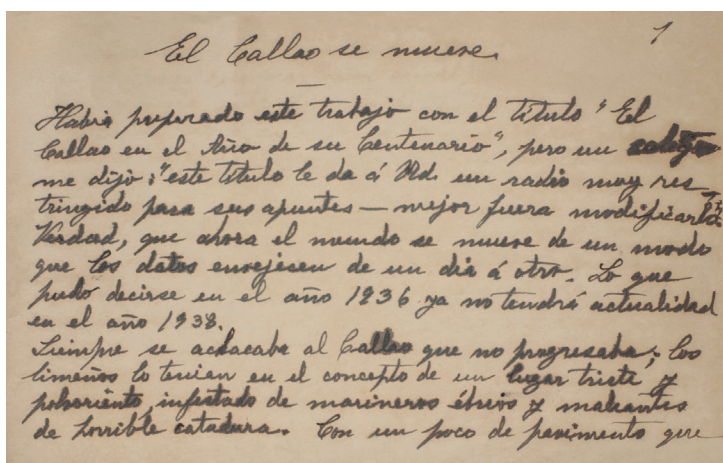 1
El Callao se mueve.
Había preparado este trabajo con el título "El
Callao en el Año de su Centenario", pero un colega
me dijo: "este título le da á Ud. un radio muy res-
tringido para sus apuntes — mejor fuera modificarlo."
Verdad, que ahora el mundo se mueve de un modo
que los datos envejecen de un dia á otro. Lo que
pudo decirse en el año 1936 ya no tendrá actualidad
en el año 1938.
Siempre se achacaba al Callao que no progresaba; los
limeños lo tenian en el concepto de un lugar triste y
polvoriento, infestado de marineros ébrios y maleantes
de horrible catadura. Con un poco de pavimento que